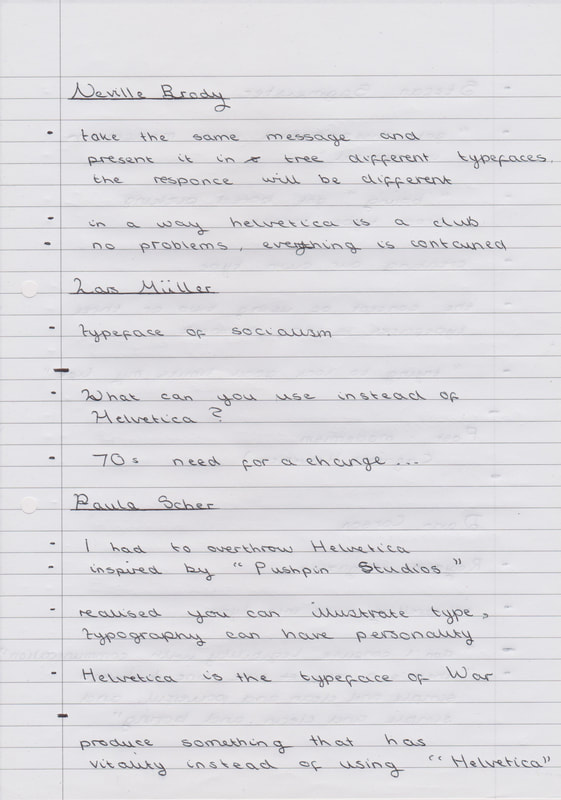 Neville Brody
- take the same message and
present it in tree different typefaces.
the responce will be different
- in a way helvetica is a club
- no problems, everything is contained
Lars Müller
- typeface of socialism
-
- What can you use instead of
Helvetica?
- 70s need for a change...
Paula Scher
- I had to overthrow Helvetica
- inspired by "Pushpin Studios"
- realised you can illustrate type,
typography can have personality
- Helvetica is the typeface of War
-
produce something that has
vitality instead of using "Helvetica"